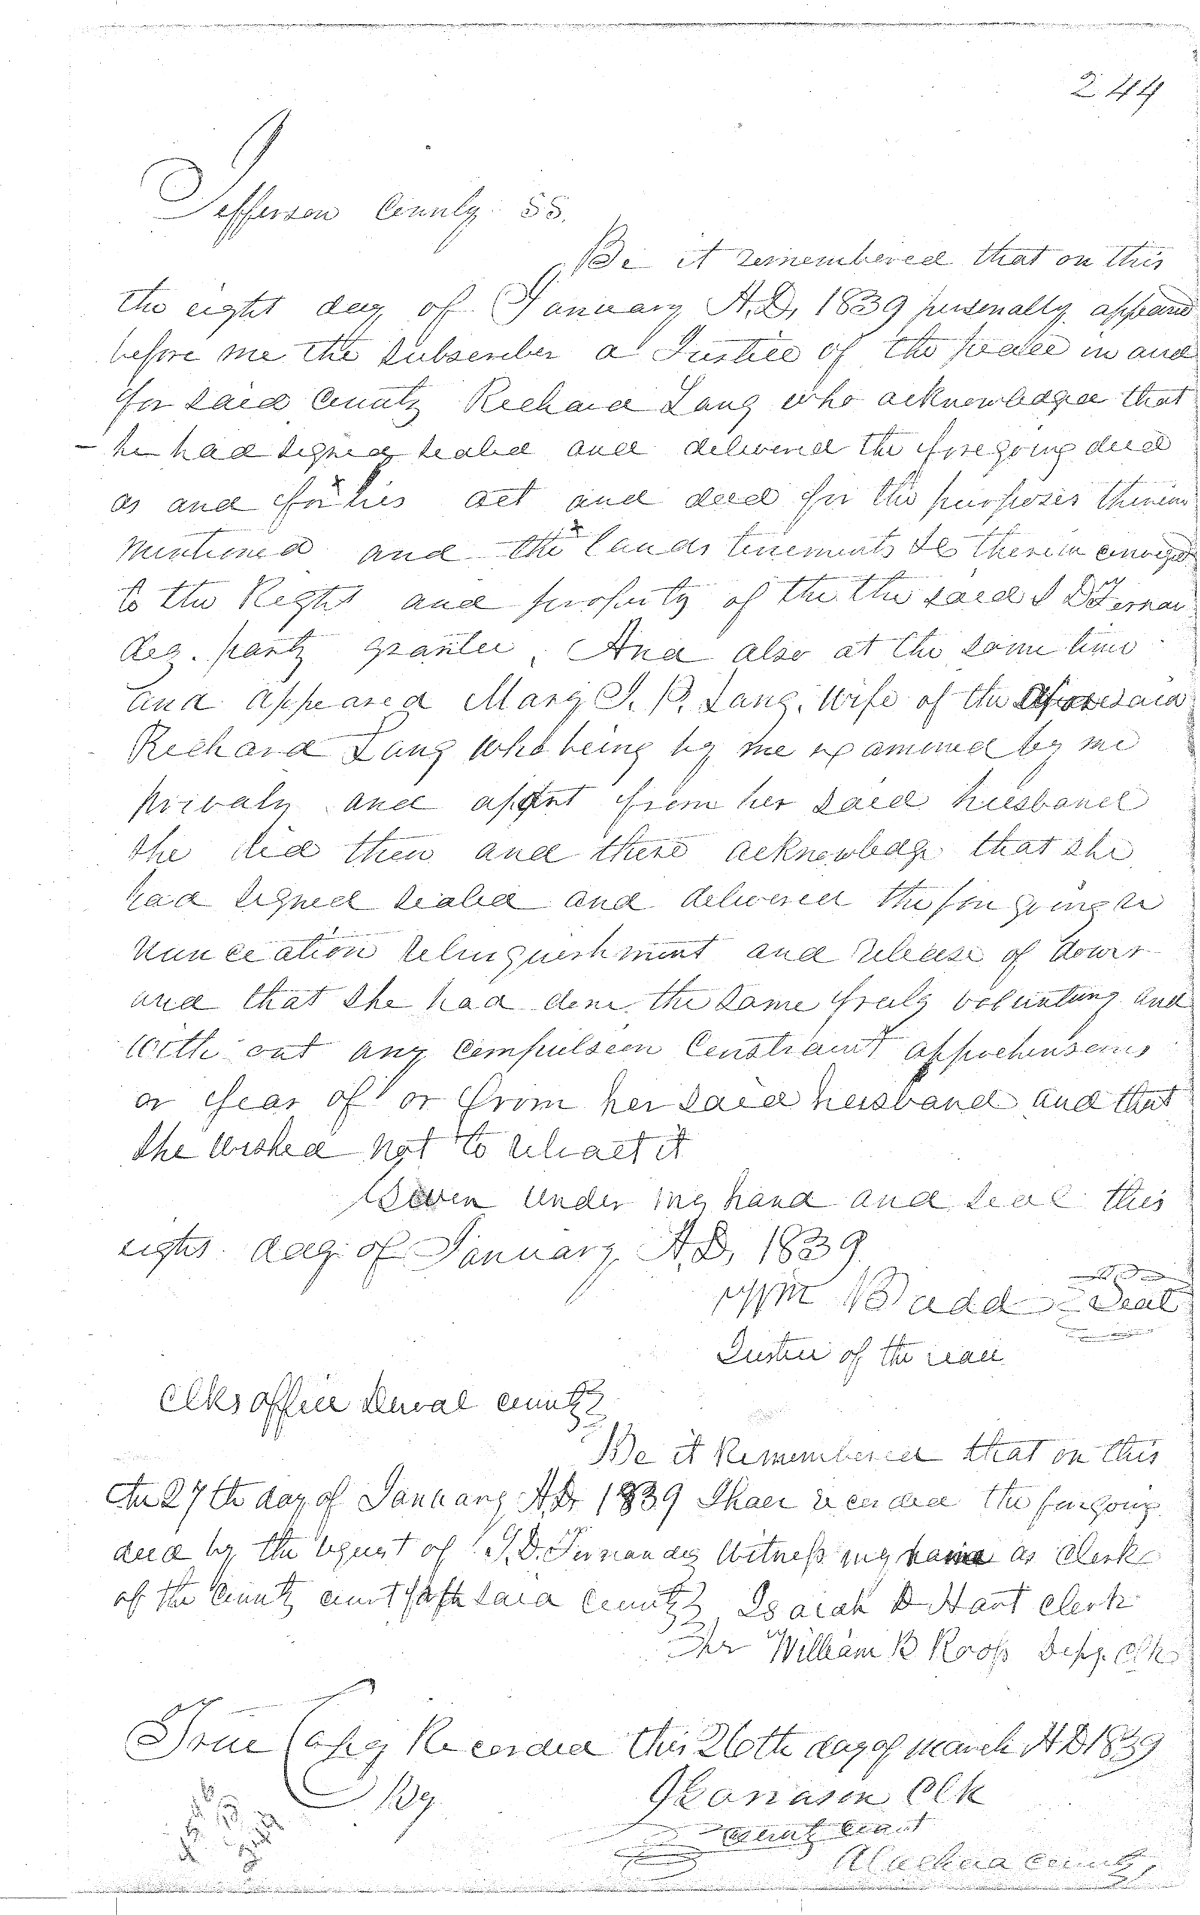 244
Jefferson County SS.
Be it remembered that on this
the eight day of January A.D. 1839 personally appeared
before me the Subscriber a Justice of the peace in and
for said County Richard Lang who acknowledged that
he had signed sealed and delivered the foregoing deed
as and for his act and deed for the purposes therein
mentioned and the lands tenements &c therein conveyed
to the Right and property of the the said J D Fernan
dez. party grantee, And also at the same time
and appeared Mary S. P. Lang. Wife of the aforesaid
Richard Lang who being by me examined by me
privaly and apart from her said husband
she did then and there acknowledge that she
had signed sealed and delivered the foregoing re
nunceation relinquishment and release of dower
and that she had done the same freely voluntary and
with out any compulsion Constraint apprehensions
or fear of or from her said husband and that
she wished not to retract it
Given under my hand and seal this
eight day of January A.D, 1839
Wm Badd Seal
Justice of the peace
Clks office Duval county
Be it Remembered that on this
the 27th day of January A.D. 1839 I have recorded the forgoing
deed by the request of J.D. Fernandez Witness my name as clerk
of the County court of said County Isaiah D Hart clerk
Per William B Ross Depy. Clk
True Copy Recorded this 26th day of march AD 1839
By Clk
County Court
Alachua County,